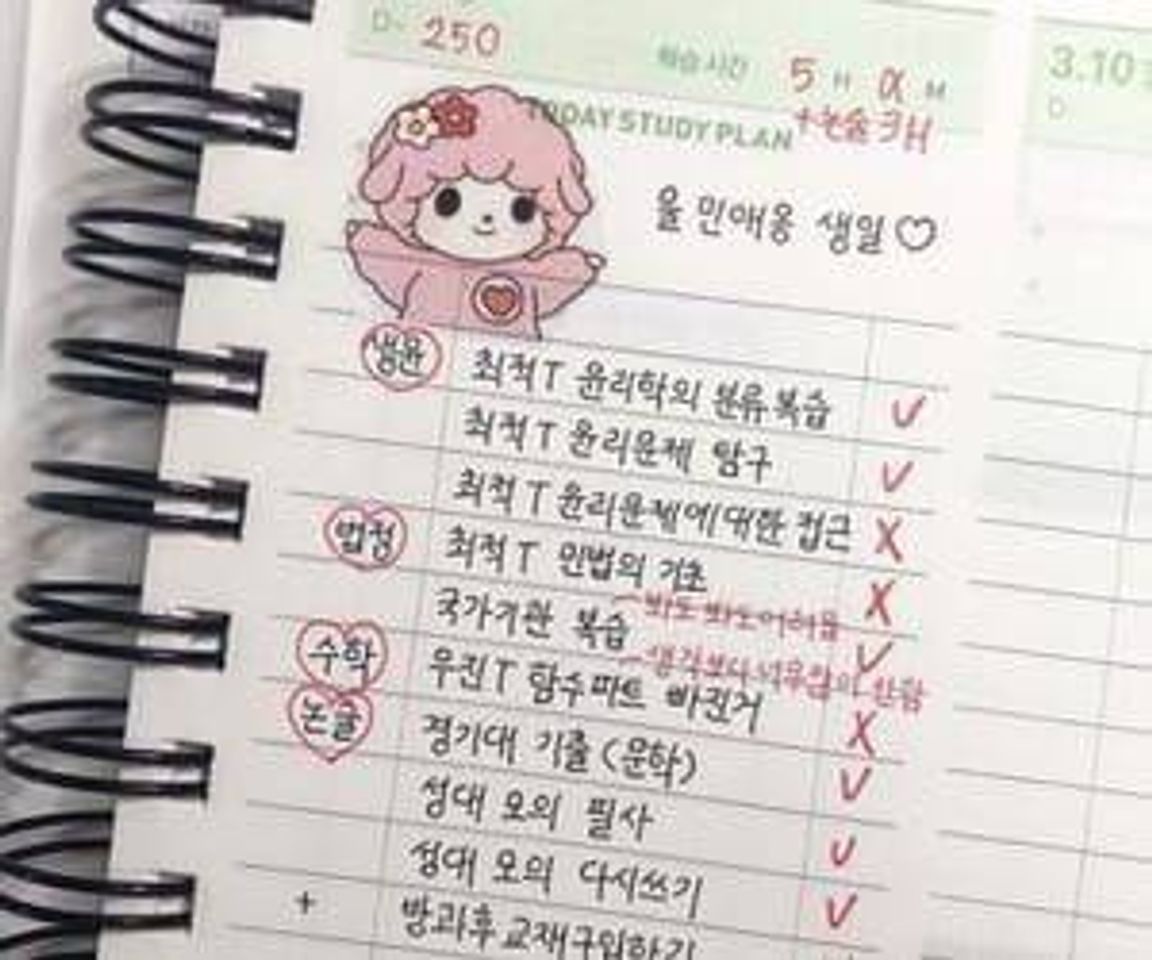 D- 250
학습시간 5 H α M
+논술 3H
3.10
D
TODAY STUDY PLAN
율 민애옹 생일♡
생윤 최적T 윤리학의 분류 복습 ✓
최적T 윤리문제 탐구 ✓
최적T 윤리문제에 대한 접근 X
법정 최적T 민법의 기초 X
봐도 봐도 어려움
국가기관 복습 ✓
생각보다 너무
수학 우진T 함수파트 빠진거 X
논글 경기대 기출 (문학) ✓
성대 모의 필사 ✓
성대 모의 다시쓰기 ✓
+ 방과후 교재구입하기